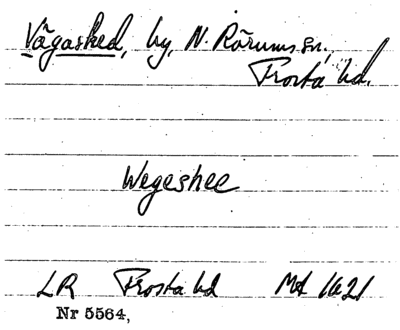 Vågasked, by, N. Rörums sn.,
Frosta hd.
Wegeshee
LR Frosta hd Mt 1621
Nr 5564,